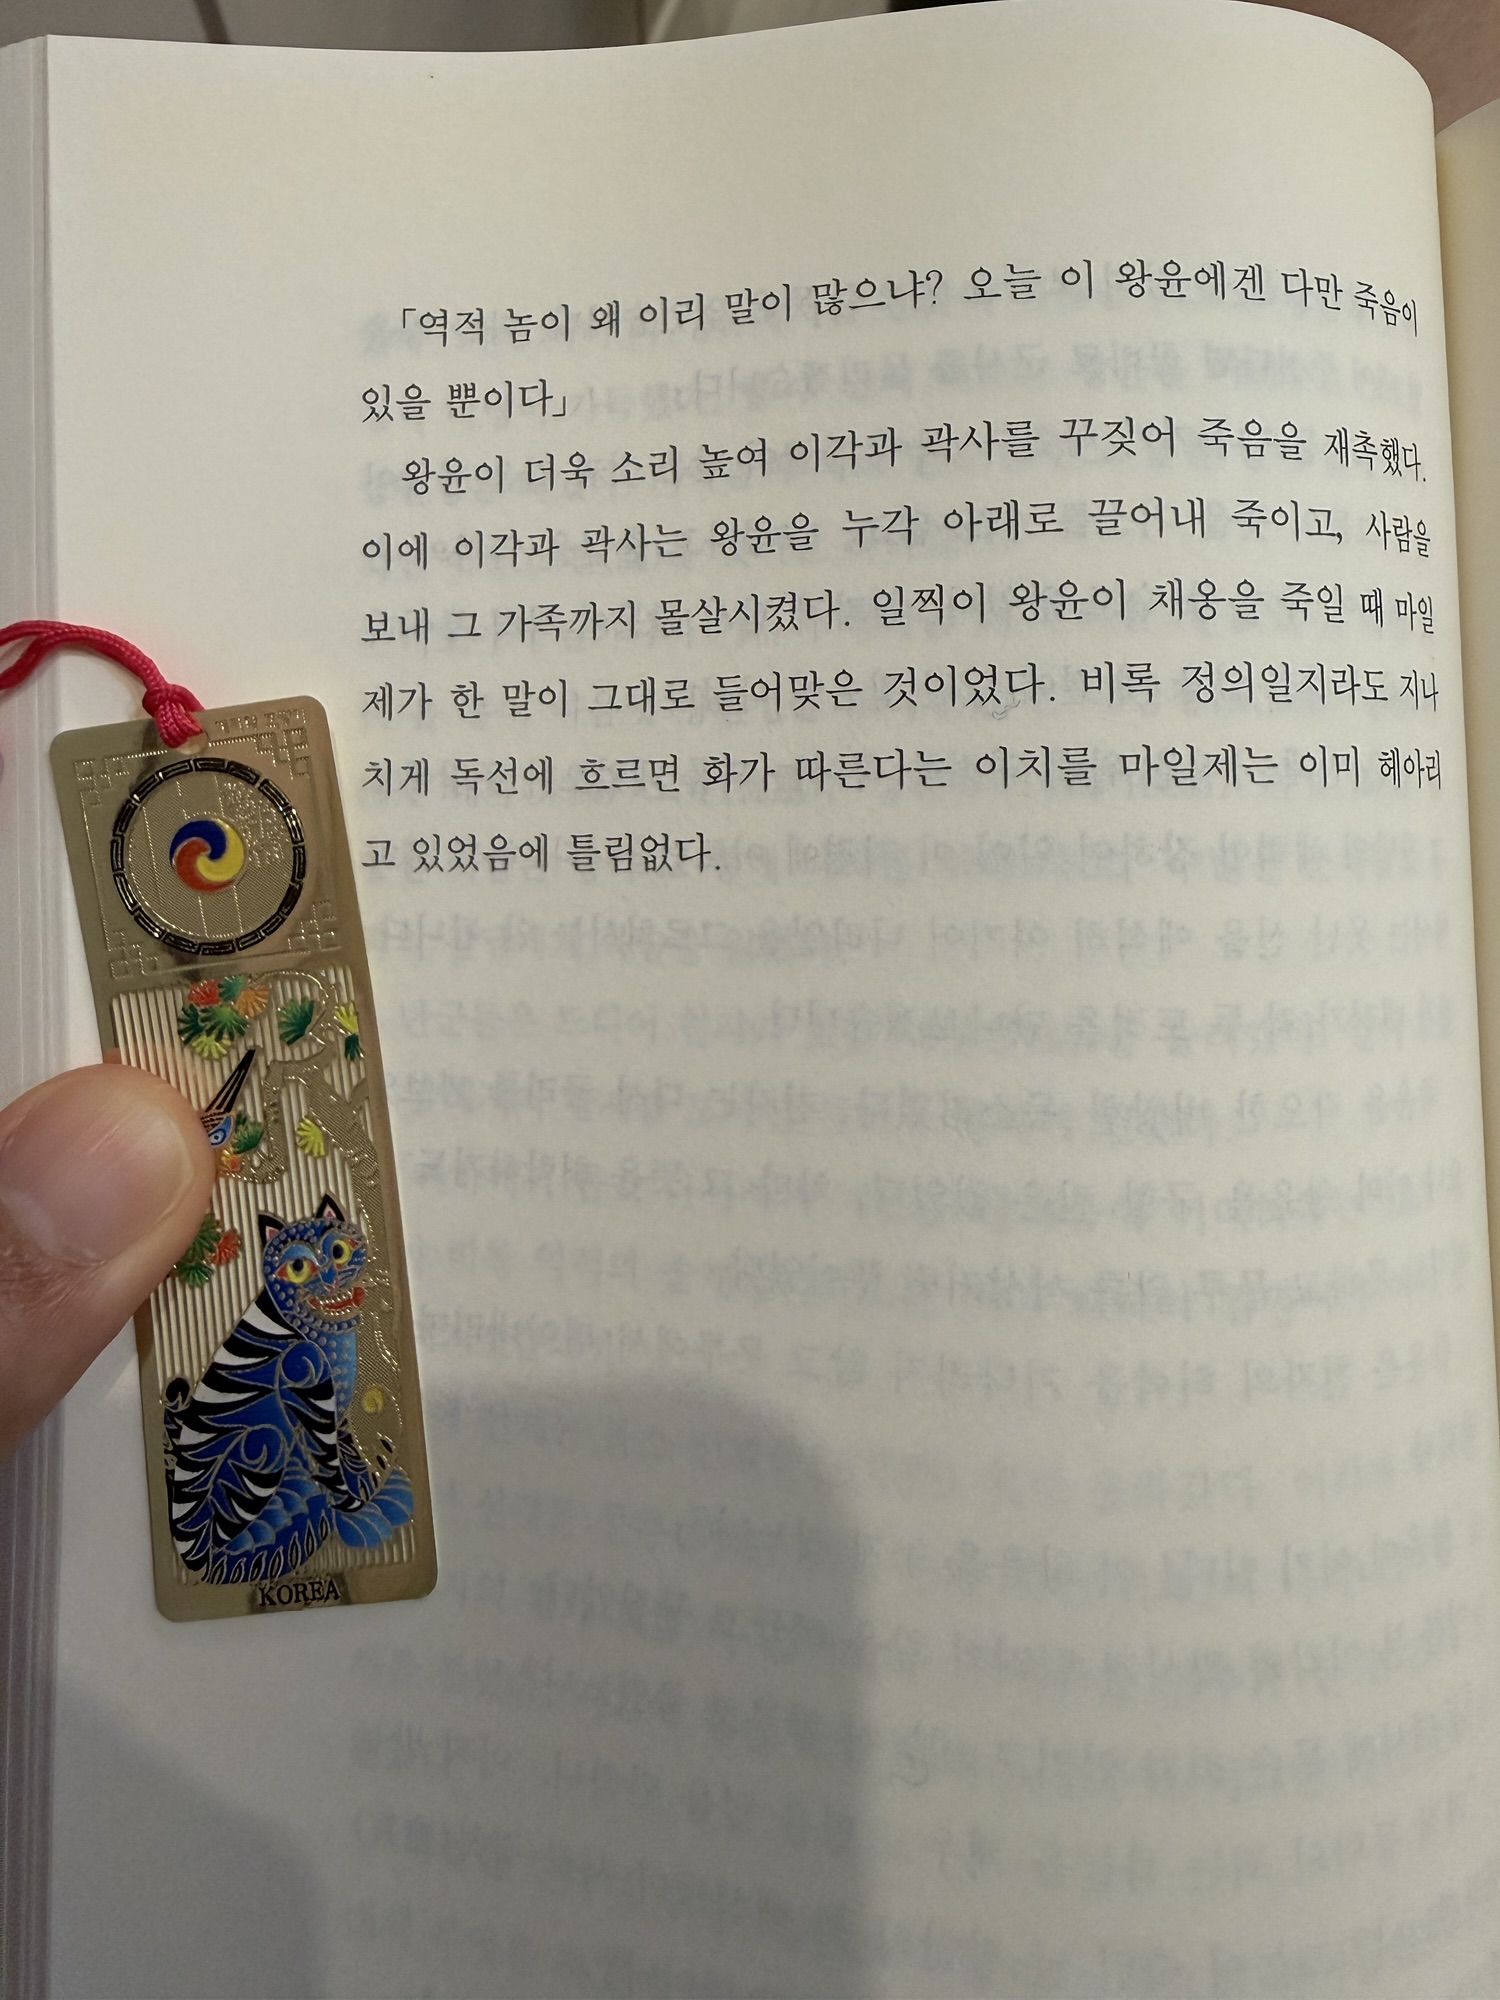 「역적 놈이 왜 이리 말이 많으냐? 오늘 이 왕윤에겐 다만 죽음이
있을 뿐이다」
왕윤이 더욱 소리 높여 이각과 곽사를 꾸짖어 죽음을 재촉했다.
이에 이각과 곽사는 왕윤을 누각 아래로 끌어내 죽이고, 사람을
보내 그 가족까지 몰살시켰다. 일찍이 왕윤이 채옹을 죽일 때 마일
제가 한 말이 그대로 들어맞은 것이었다. 비록 정의일지라도 지나
치게 독선에 흐르면 화가 따른다는 이치를 마일제는 이미 헤아리
고 있었음에 틀림없다.
KOREA